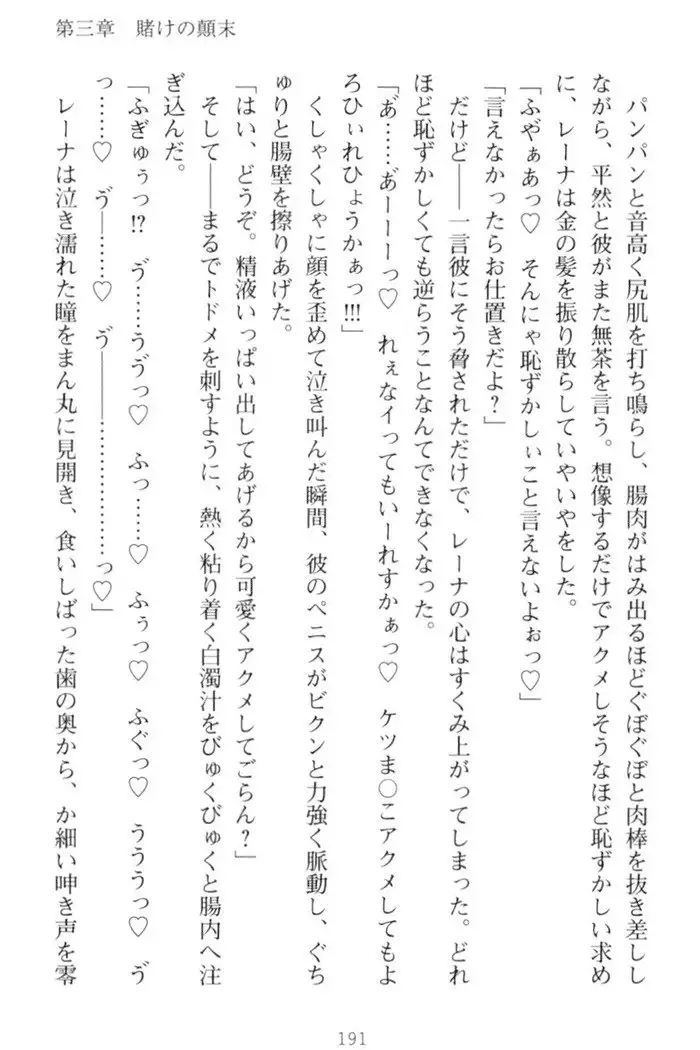 第三章　賭けの顛末
　パンパンと音高く尻肌を打ち鳴らし、腸肉がはみ出るほどぐぽぐぽと肉棒を抜き差しし
ながら、平然と彼がまた無茶を言う。想像するだけでアクメしそうなほど恥ずかしい求め
に、レーナは金の髪を振り散らしていやいやをした。
「ふやぁあっ♡　そんにゃ恥ずかしぃこと言えないよぉっ♡」
「言えなかったらお仕置きだよ？」
　だけど――一言彼にそう脅されただけで、レーナの心はすくみ上がってしまった。どれ
ほど恥ずかしくても逆らうことなんてできなくなった。
「あ゛……あ゛ーーーっ♡　れぇなイってもいーれすかぁっ♡　ケツま○こアクメしてもよ
ろひぃれひょうかぁっ!!!」
　くしゃくしゃに顔を歪めて泣き叫んだ瞬間、彼のペニスがビクンと力強く脈動し、ぐち
ゅりと腸壁を擦りあげた。
「はい、どうぞ。精液いっぱい出してあげるから可愛くアクメしてごらん？」
　そして――まるでトドメを刺すように、熱く粘り着く白濁汁をびゅくびゅくと腸内へ注
ぎ込んだ。
「ふぎゅぅっ!?　ゔ……うゔっ♡　ふっ……♡　ふぅっ♡　ふぐっ♡　うううっ♡　ゔ
っ……♡　ゔ―……♡　ゔ――…………………っ♡」
　レーナは泣き濡れた瞳をまん丸に見開き、食いしばった歯の奥から、か細い呻き声を零
191